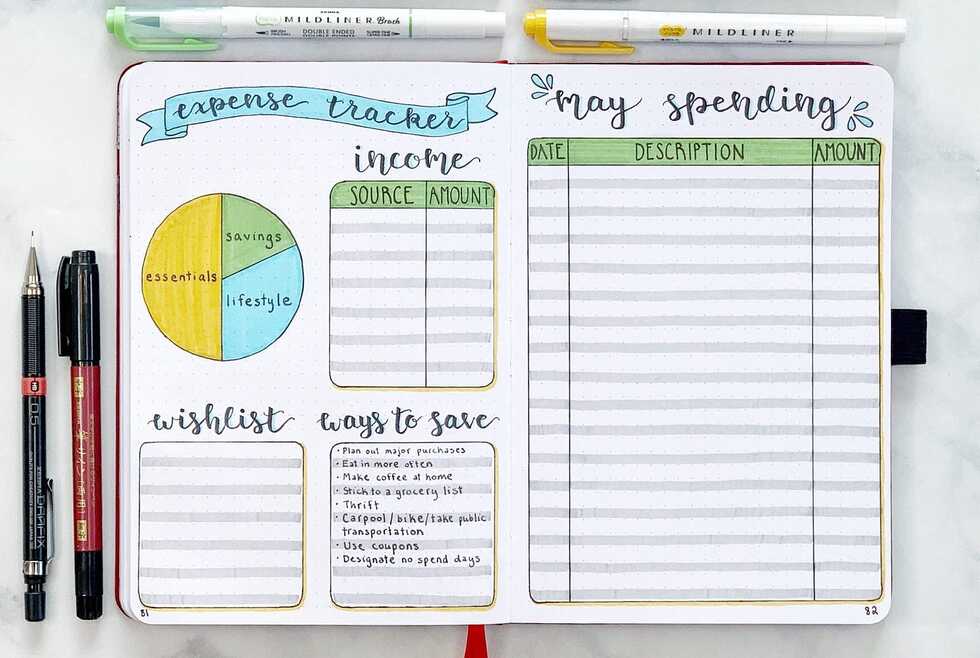 ZEBRA
MILDLINER Brush
DOUBLE ENDED
MILDLINER
expense tracker
income
SOURCE AMOUNT
savings
essentials
lifestyle
wishlist
ways to save
• Plan out major purchases
• Eat in more often
• Make coffee at home
• Stick to a grocery list
• Thrift
• Carpool/bike/take public
transportation
• Use coupons
• Designate no spend days
81
may spending
DATE DESCRIPTION AMOUNT
82
0.5